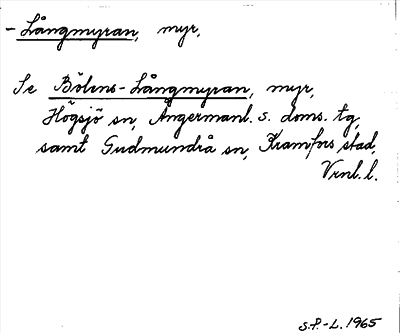 - Långmyran, myr.
Se Bölens-Långmyran, myr,
Högsjö sn, Ångermanl. s. doms. tg,
samt Gudmundrå sn, Kramfors stad,
Vrnl. l.
S.P.-L. 1965